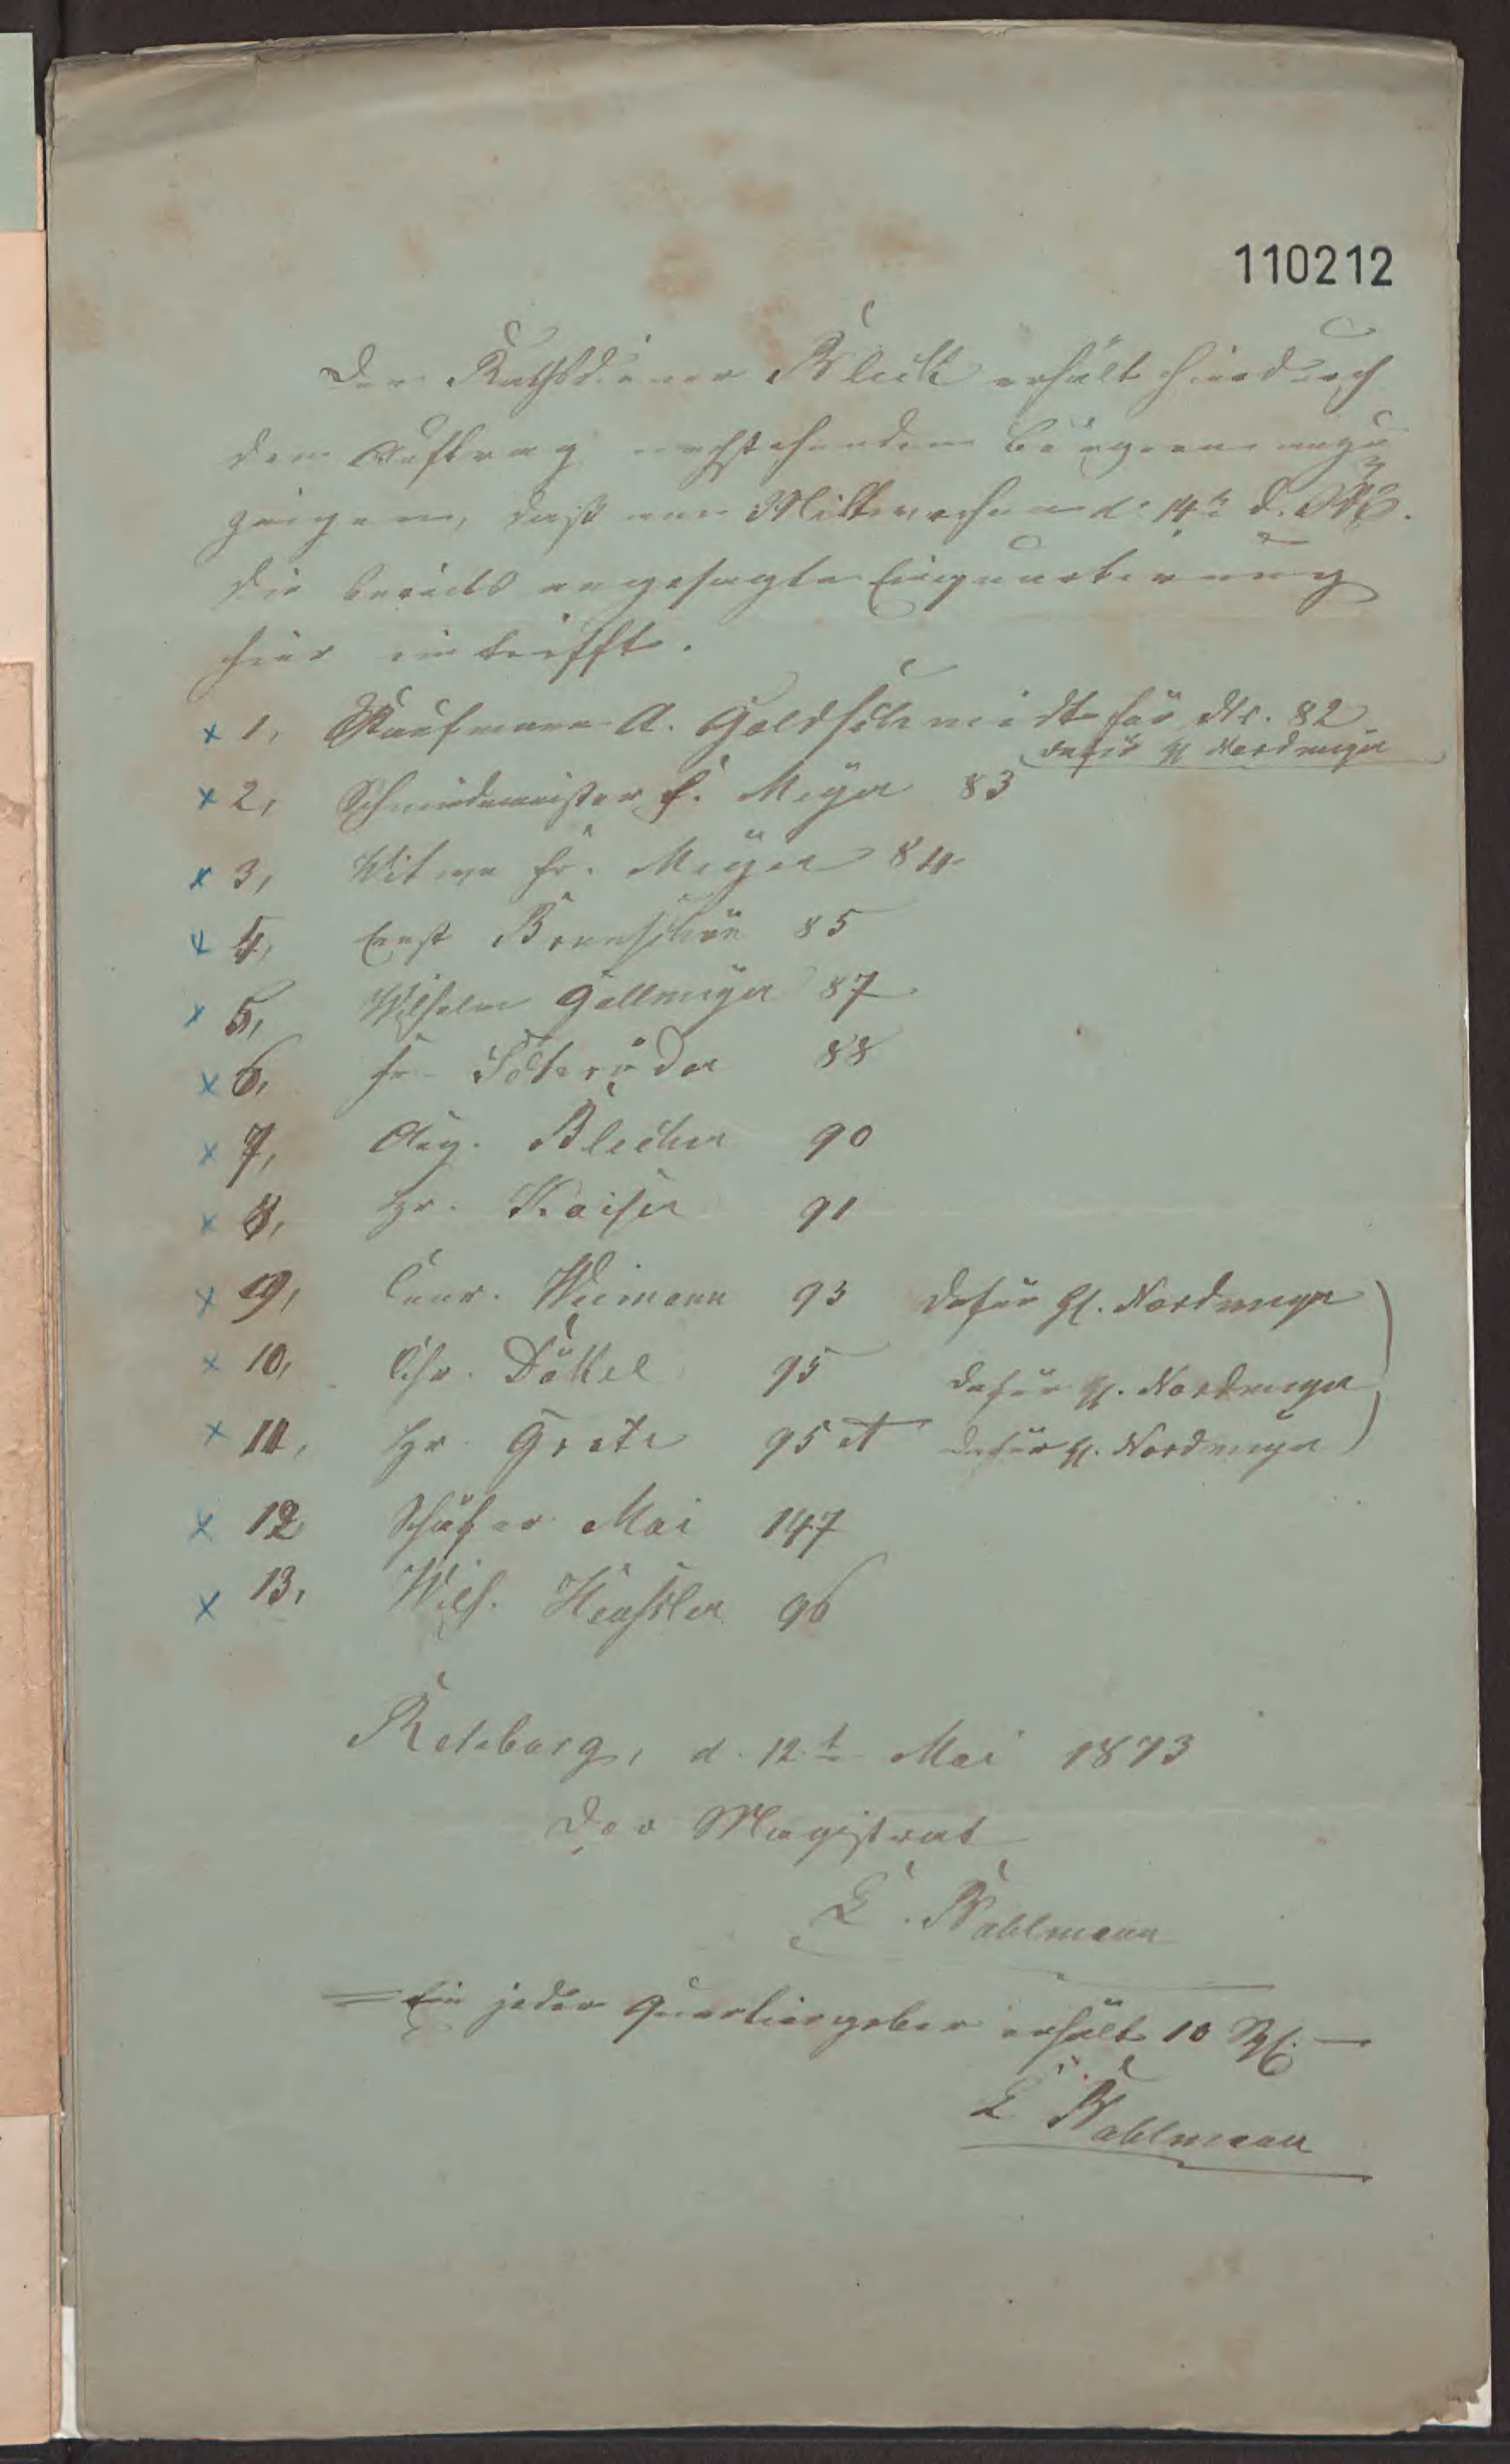 110212
Der Rathsdiener Bleck erhält hierdurch
den Auftrag nachstehenden Bürgern anzu
zeigen, daß am Mittwochen d. 14t d. Mts.
die bereits angesagte Einquartierung
hier eintrifft.
x 1, Kaufmann A. Goldschmidt für Nr. 82
dafür H. Nordmeyer
x 2, Schmiedemeister F. Meyer 83
x 3, Witwe Fr. Meyer 84
x 4, Ernst Bonnschön 85
x 5, Wilhelm Gallmeyer 87
x 6, Fr. Söteröder 88
x 7, Aug. Blecker 90
x 8, Hr. Kaiser 91
x 9, Conr. Wiemann 93 dafür H. Nordmeyer
x 10, Chr. Döttel 95 dafür H. Nordmeyer
x 11, Hr. Grote 95 A dafür H. Nordmeyer
x 12 Schäfer Mai 147
x 13, Wilh. Hensler 96
Rehburg, d. 12.t Mai 1873
Der Magistrat
E. Wahlmann
Ein jeder Quartiergeber erhält 10
E Wahlmann